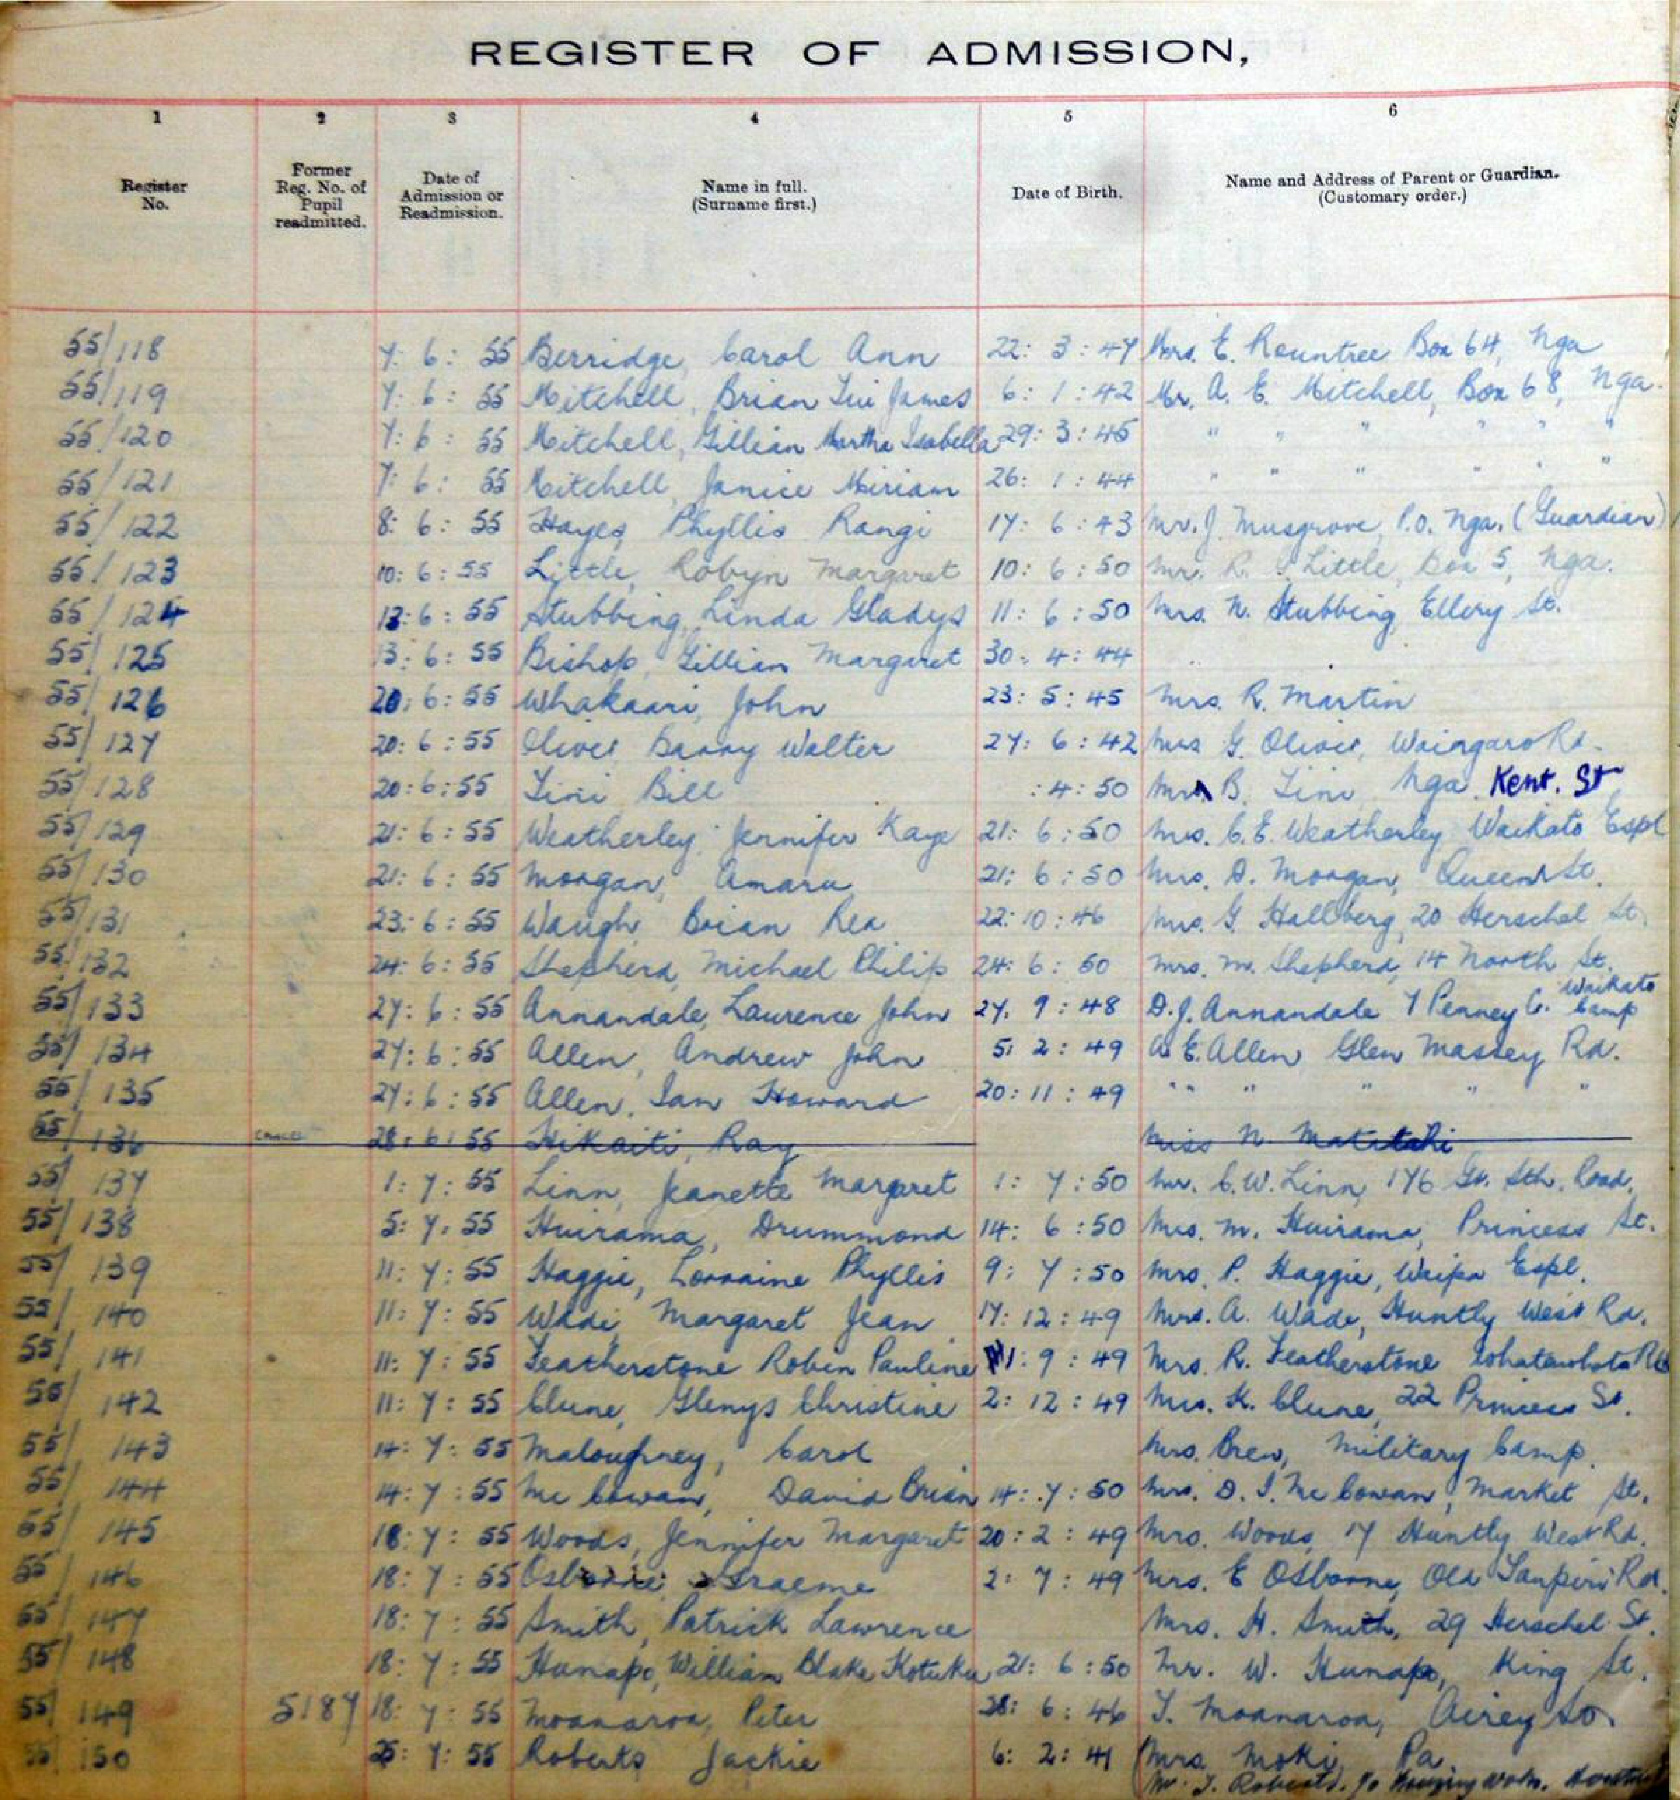 REGISTER OF ADMISSION,
1 2 3 4 5 6
Register No. Former Reg. No. of Pupil readmitted. Date of Admission or Readmission. Name in full. (Surname first.) Date of Birth. Name and Address of Parent or Guardian. (Customary order.)
55/118 7: 6: 55 Berridge, Carol Ann 22: 3: 47 Mrs. E. Rountree Box 64, Nga
55/119 7: 6: 55 Mitchell, Brian Tui James 6: 1: 42 Mr. A. E. Mitchell, Box 68, Nga.
55/120 7: 6: 55 Mitchell, Gillian Martha Isabella 29: 3: 45 " " " " " "
55/121 7: 6: 55 Mitchell, Janice Miriam 26: 1: 44 " " " " " "
55/122 8: 6: 55 Hayes, Phyllis Rangi 17: 6: 43 Mr. J. Musgrove, P.O. Nga. (Guardian)
55/123 10: 6: 55 Little, Robyn Margaret 10: 6: 50 Mr. R. Little, Box 5, Nga.
55/124 13: 6: 55 Stubbing, Linda Gladys 11: 6: 50 Mrs. N. Stubbing, Ellery St.
55/125 13: 6: 55 Bishop, Gillian Margaret 30: 4: 44
55/126 20: 6: 55 Whakaari, John 23: 5: 45 Mrs. R. Martin
55/127 20: 6: 55 Oliver Barry Walter 27: 6: 42 Mrs G. Oliver, Waingaro Rd.
55/128 20: 6: 55 Tini Bill : 4: 50 B. Tini Nga. Kent. St
55/129 21: 6: 55 Weatherley, Jennifer Kaye 21: 6: 50 Mrs. C. E. Weatherley Waikato Espl
55/130 21: 6: 55 Morgan, Amara 21: 6: 50 Mrs. D. Morgan, Queen St.
55/131 23: 6: 55 Waugh, Brian Rea 22: 10: 46 Mrs. G. Hallberg, 20 Herschel St.
55/132 24: 6: 55 Shepherd, Michael Philip 24: 6: 50 Mrs. M. Shepherd, 14 North St.
55/133 27: 6: 55 Annandale, Laurence John 27. 9: 48 D. J. Annandale 7 Penney C. Waikato Camp
55/134 27: 6: 55 Allen, Andrew John 5: 2: 49 A. E. Allen Glen Massey Rd.
55/135 27: 6: 55 Allen, Ian Howard 20: 11: 49 " " " " " "
55/136 28: 6: 55 Hikaiti, Ray Miss N
55/137 1: 7: 55 Linn, Jeanette Margaret 1: 7: 50 Mr. C. W. Linn, 176 Gt. Sth. Road.
55/138 5: 7: 55 Huirama, Drummond 14: 6: 50 Mrs. M. Huirama, Princess St.
55/139 11: 7: 55 Haggie, Lorraine Phyllis 9: 7: 50 Mrs. P. Haggie, Waipa Espl.
55/140 11: 7: 55 Wade, Margaret Jean 17: 12: 49 Mrs. A. Wade, Huntly West Rd.
55/141 11: 7: 55 Featherstone Robin Pauline 11: 9: 49 Mrs. R. Featherstone
55/142 11: 7: 55 Clune, Glenys Christine 2: 12: 49 Mrs. K. Clune, 22 Princess St.
55/143 14: 7: 55 Maloughney, Carol Mrs. Brew, Military Camp.
55/144 14: 7: 55 Mc Cowan, David Brian 14: 7: 50 Mrs. D. I. Mc Cowan, Market St.
55/145 18: 7: 55 Woods, Jennifer Margaret 20: 2: 49 Mrs. Woods, 17 Huntly West Rd.
55/146 18: 7: 55 Osborne, Graeme 2: 7: 49 Mrs. E Osborne, Old Taupiri Rd.
55/147 18: 7: 55 Smith, Patrick Lawrence Mrs. H. Smith, 29 Herschel St.
55/148 18: 7: 55 Hunapo, William Blake Kotuku 21: 6: 50 Mr. W. Hunapo, King St.
55/149 5187 18: 7: 55 Moanaroa, Peter 28: 6: 46 T. Moanaroa, Airey St.
55/150 25: 7: 55 Roberts Jackie 6: 2: 41 (Mrs. Moki, Pa.
Mr. T. Roberts.